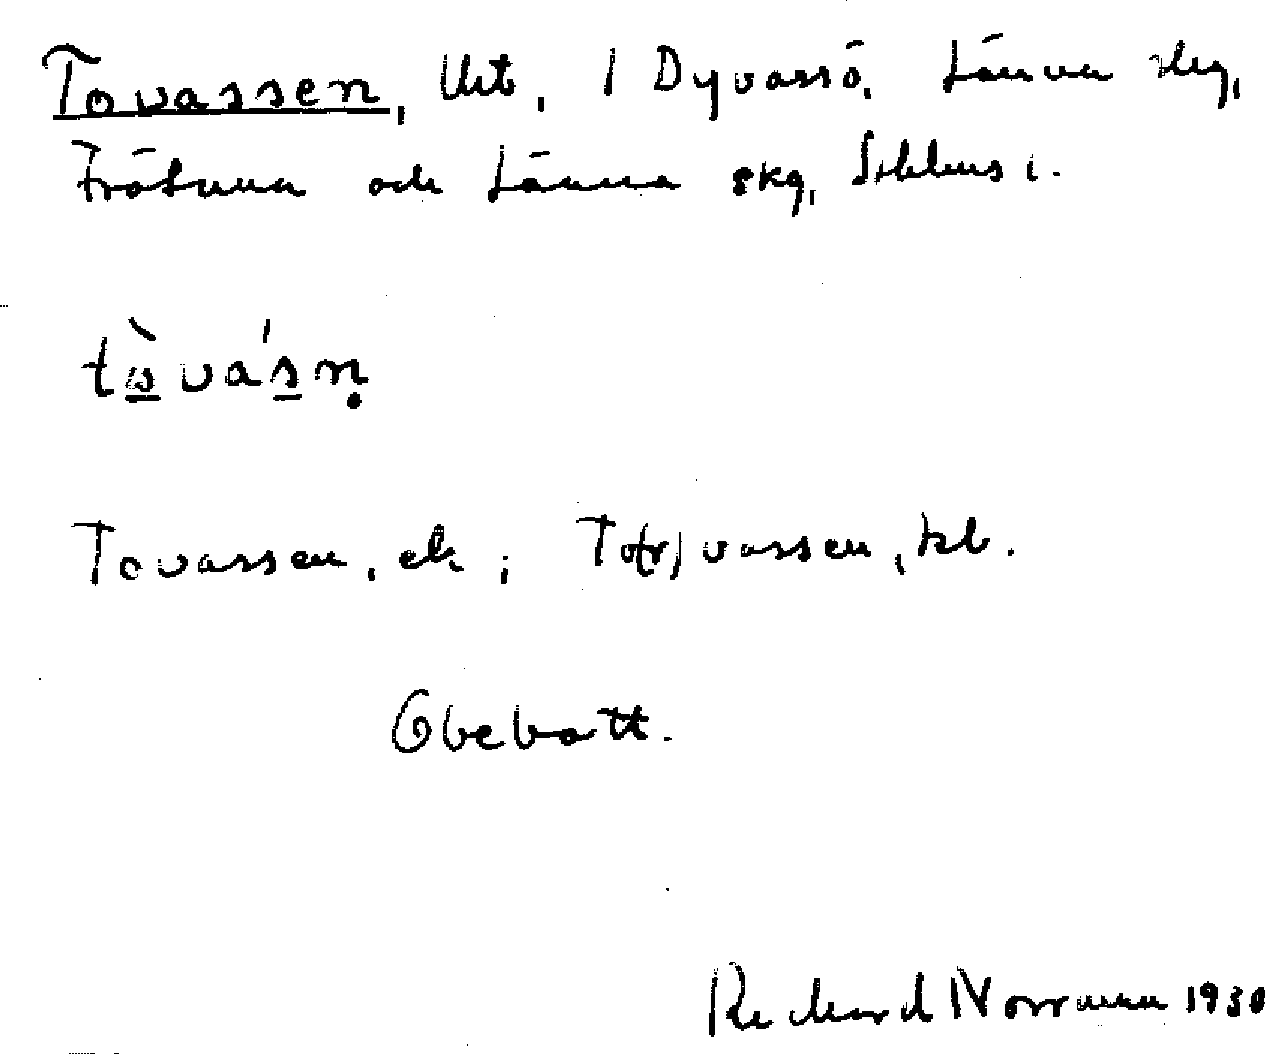 Tovassen, Utt. / Dyvassö, Länna skg,
Frötuna och Länna skg, Sthlms l.
tòvá'sṇ
Tovassen, ek; To(r)vassen, kb.
Obebott.
Richard Norrman 1930